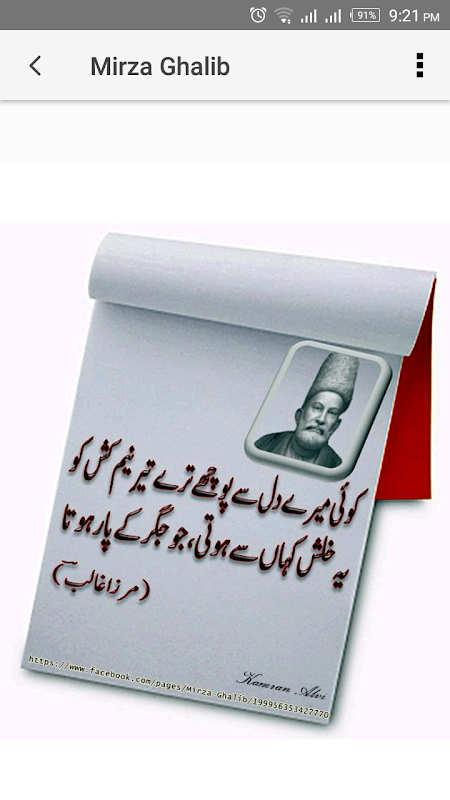 91% 9:21 PM
Mirza Ghalib
کوئی میرے دل سے پوچھے ترے تیر نیم کش کو
یہ خلش کہاں سے ہوتی، جو جگر کے پار ہوتا
(مرزا غالب)
Kamran Alvi
https://www.facebook.com/pages/Mirza-Ghalib/199956353427770